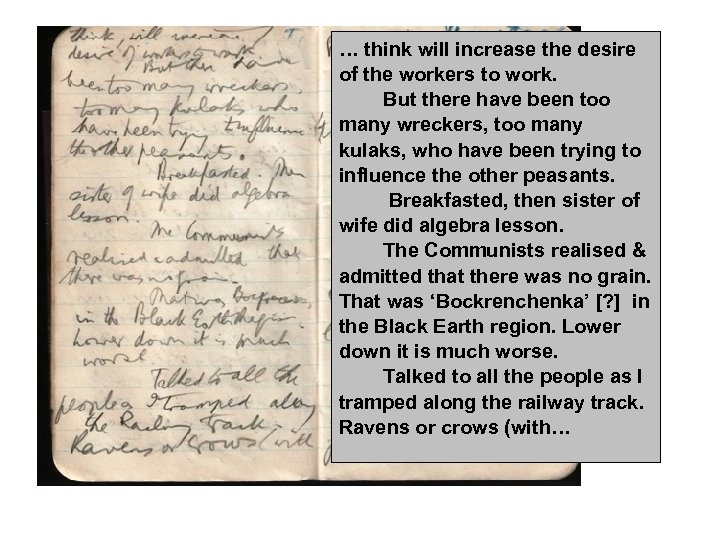 think, will increase
desire of workers to work.
But there have
been too many wreckers,
too many kulaks who
have been trying to influence
the other peasants.
Breakfasted. Then
sister of wife did algebra
lesson.
The Communists
realised & admitted that
there was no grain.
That was
in the Black Earth region.
Lower down it is much
worse.
Talked to all the
people as I tramped along
the Railway track.
Ravens or crows (with
… think will increase the desire
of the workers to work.
But there have been too
many wreckers, too many
kulaks, who have been trying to
influence the other peasants.
Breakfasted, then sister of
wife did algebra lesson.
The Communists realised &
admitted that there was no grain.
That was ‘Bockrenchenka’ [?] in
the Black Earth region. Lower
down it is much worse.
Talked to all the people as I
tramped along the railway track.
Ravens or crows (with…